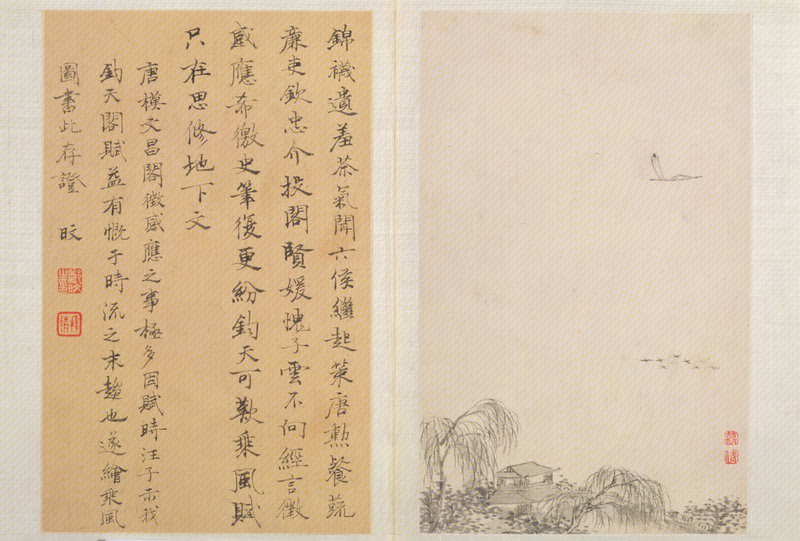 錦襪遺羞茶氣聞六侯繼起策唐勲餐蔬
廉吏欽忠介投閣賢媛愧子雲不向經言徵
感應希徼史筆復更紛鈞天可歎乘風賦
只在思修地下文
唐模文昌閣徵感應之事極多因賦時汪子示我
鈞天閣賦益有慨于時流之末趨也遂繪乘風
圖書此存證 旼